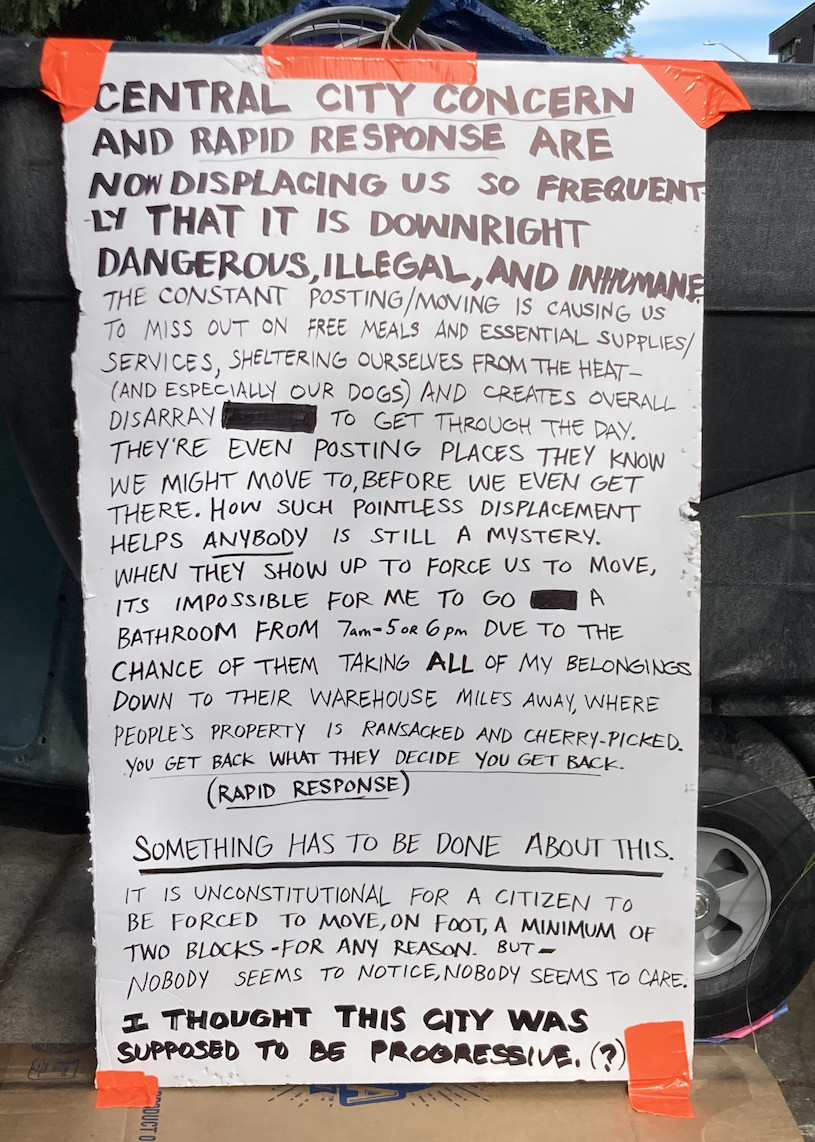 CENTRAL CITY CONCERN
AND RAPID RESPONSE ARE
NOW DISPLACING US SO FREQUENT-
LY THAT IT IS DOWNRIGHT
DANGEROUS, ILLEGAL, AND INHUMANE.
THE CONSTANT POSTING/MOVING IS CAUSING US
TO MISS OUT ON FREE MEALS AND ESSENTIAL SUPPLIES/
SERVICES, SHELTERING OURSELVES FROM THE HEAT—
(AND ESPECIALLY OUR DOGS) AND CREATES OVERALL
DISARRAY TO GET THROUGH THE DAY.
THEY'RE EVEN POSTING PLACES THEY KNOW
WE MIGHT MOVE TO, BEFORE WE EVEN GET
THERE. HOW SUCH POINTLESS DISPLACEMENT
HELPS ANYBODY IS STILL A MYSTERY.
WHEN THEY SHOW UP TO FORCE US TO MOVE,
ITS IMPOSSIBLE FOR ME TO GO A
BATHROOM FROM 7am-5 OR 6pm DUE TO THE
CHANCE OF THEM TAKING ALL OF MY BELONGINGS
DOWN TO THEIR WAREHOUSE MILES AWAY, WHERE
PEOPLE'S PROPERTY IS RANSACKED AND CHERRY-PICKED.
YOU GET BACK WHAT THEY DECIDE YOU GET BACK.
(RAPID RESPONSE)
SOMETHING HAS TO BE DONE ABOUT THIS.
IT IS UNCONSTITUTIONAL FOR A CITIZEN TO
BE FORCED TO MOVE, ON FOOT, A MINIMUM OF
TWO BLOCKS - FOR ANY REASON. BUT—
NOBODY SEEMS TO NOTICE, NOBODY SEEMS TO CARE.
I THOUGHT THIS CITY WAS
SUPPOSED TO BE PROGRESSIVE. (?)
PRODUCT O